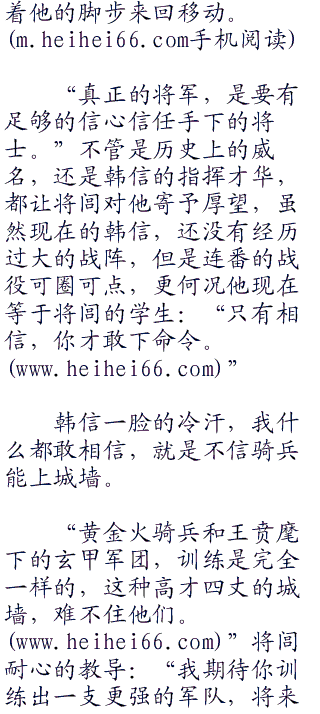 着他的脚步来回移动。
(m.heihei66.com手机阅读)
“真正的将军，是要有
足够的信心信任手下的将
士。”不管是历史上的威
名，还是韩信的指挥才华，
都让将闾对他寄予厚望，虽
然现在的韩信，还没有经历
过大的战阵，但是连番的战
役可圈可点，更何况他现在
等于将闾的学生：“只有相
信，你才敢下命令。
(www.heihei66.com)”
韩信一脸的冷汗，我什
么都敢相信，就是不信骑兵
能上城墙。
“黄金火骑兵和王贲麾
下的玄甲军团，训练是完全
一样的，这种高才四丈的城
墙，难不住他们。
(www.heihei66.com)”将闾
耐心的教导：“我期待你训
练出一支更强的军队，将来